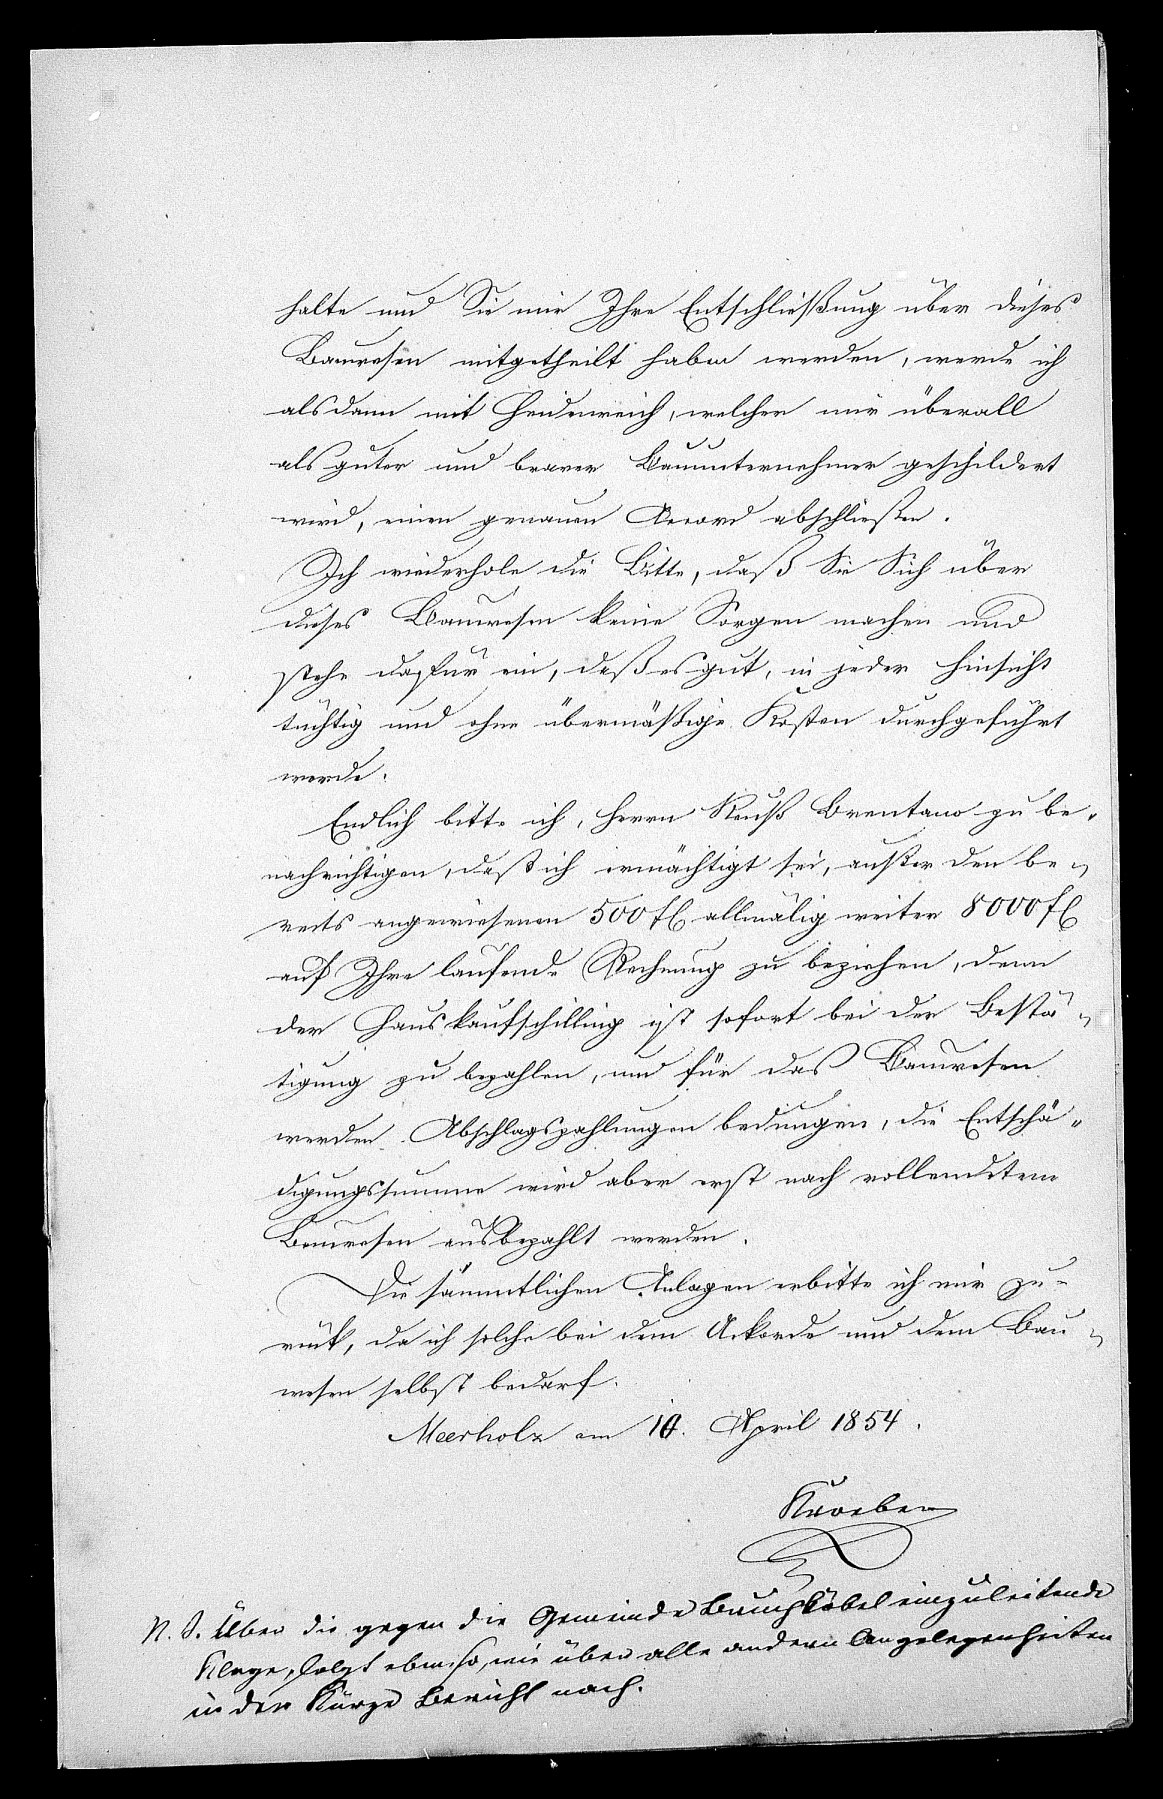 halte und Sie mir Ihre Entschließung über dieses
Bauwesen mitgetheilt haben werden, werde ich
alsdann mit Heidenreich, welcher mir überall
als guter und braver Bauunternehmer geschildert
wird, einen genauen Accord abschließen.
Ich wiederhole die Bitte, daß Sie Sich über
dieses Bauwesen keine Sorgen machen und
stehe dafür ein, daß es gut, in jeder Hinsicht
tüchtig und ohne übermäßige Kosten durchgeführt
werde.
Endlich bitte ich, Herrn Reuß Brentano zu be-
nachrichtigen, daß ich ermächtigt sei, außer den be-
reits angewiesenen 500 fl, allmälig weiter 8000 fl
auf Ihre laufende Rechnung zu beziehen, denn
der Hauskaufschilling ist sofort bei der Bestä-
tigung zu bezahlen, und für das Bauwesen
werden Abschlagszahlungen bedungen, die Entschä-
digungssumme wird aber erst nach vollendetem
Bauwesen ausbezahlt werden.
Die sämmtlichen Anlagen erbitte ich mir zu-
rück, da ich solche bei dem Ackorde und dem Bau-
wesen selbst bedarf.
Meerholz am 10. April 1854.
Kroeber
N. S. Über die gegen die Gemeinde Bruchköbel einzuleitende
Klage, folgt ebenso, wie über alle andern Angelegenheiten
in der Kürze Bericht nach.